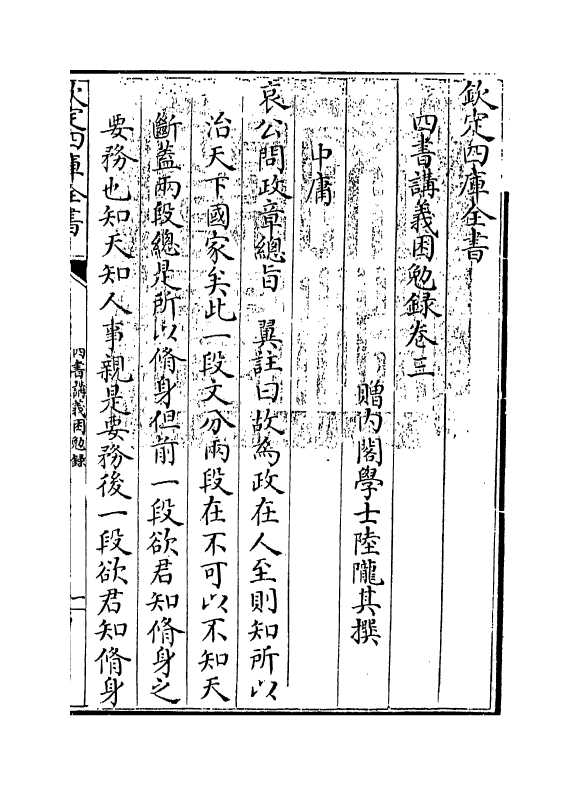 欽定四庫全書
四書講義困勉錄卷三
贈內閣學士陸隴其撰
中庸
哀公問政章總旨 翼註曰故為政在人至則知所以
治天下國家矣此一段文分兩段在不可以不知天
斷蓋兩段總是所以脩身但前一段欲君知脩身之
要務也知天知人事親是要務後一段欲君知脩身
欽定四庫全書
四書講義困勉錄
一